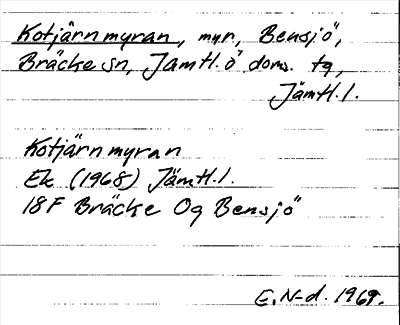 Kotjärnmyran, myr, Bensjö,
Bräcke sn, Jämtl. ö doms. tg,
Jämtl. l.
Kotjärnmyran
Ek (1968) Jämtl. l.
18F Bräcke Og Bensjö
E. N-d. 1969.